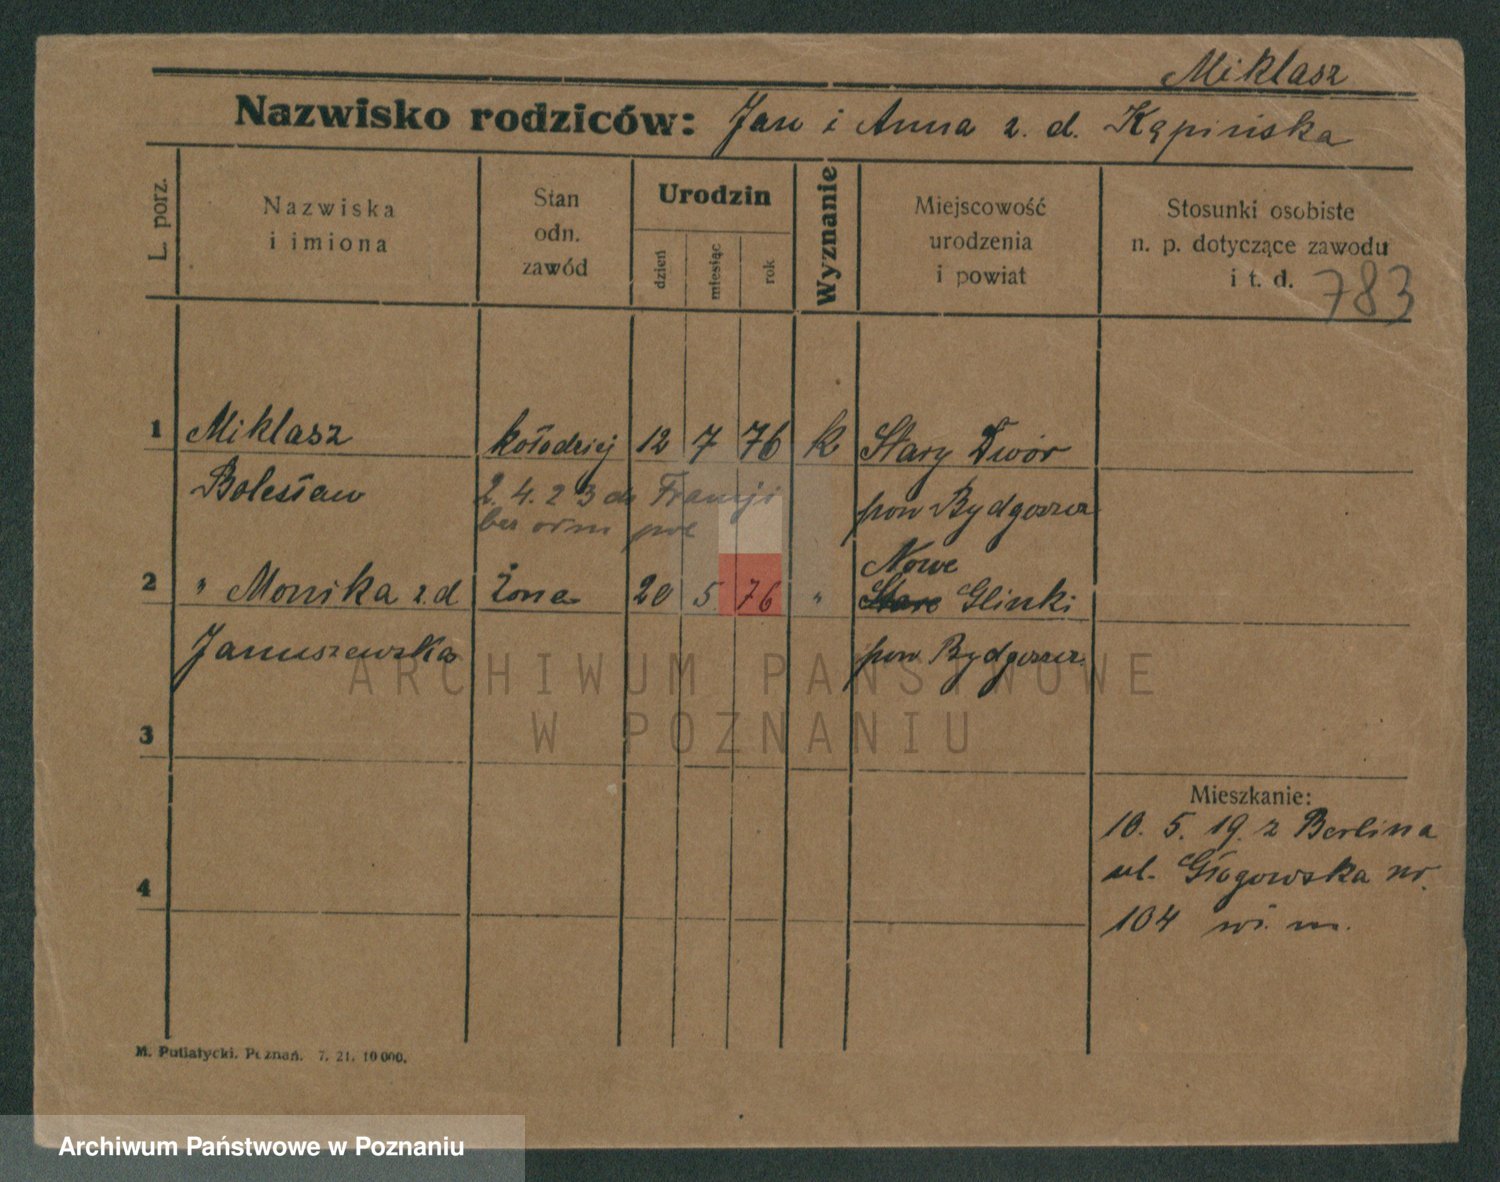 Miklasz
Nazwisko rodziców: Jan i Anna z. d. Kąpińska
L. porz.
Nazwiska
i imiona
Stan
odn.
zawód
Urodzin
dzień
miesiąc
rok
Wyznanie
Miejscowość
urodzenia
i powiat
Stosunki osobiste
n. p. dotyczące zawodu
i t. d.
783
1 Miklasz kołodziej 12 7 76 k Stary Dwór
Bolesław 2. 4. 23 do Francji pow Bydgoszcz
bez pol
Nowe
2 " Monika z.d Żona 20 5. 76 " Stare Glinki
Januszewska pow Bydgoszcz.
ARCHIWUM PAŃSTWOWE
W POZNANIU
3
Mieszkanie:
10. 5. 19. z Berlina
ul. Głogowska nr.
4
104 m.
M. Putiatycki. Poznań. 7. 21. 10 000.
Archiwum Państwowe w Poznaniu